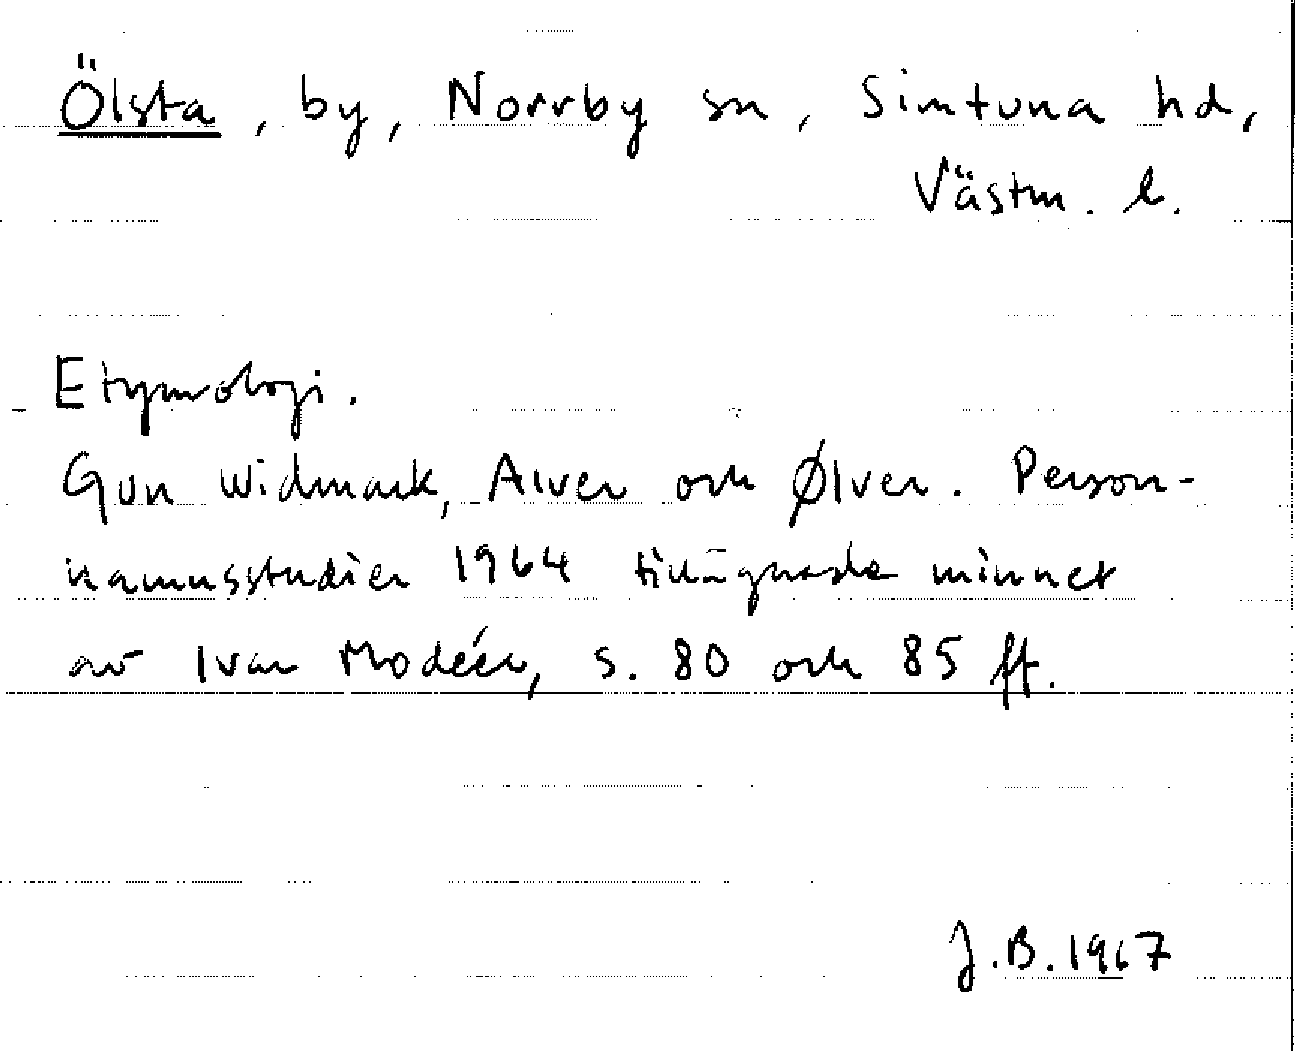 Ölsta, by, Norrby sn, Simtuna hd,
Västm. l.
Etymologi.
Gun Widmark, Alver och Ølver. Person-
namnsstudier 1964 tillägnade minnet
av Ivar Modéer, s. 80 och 85 ff.
J.B. 1967